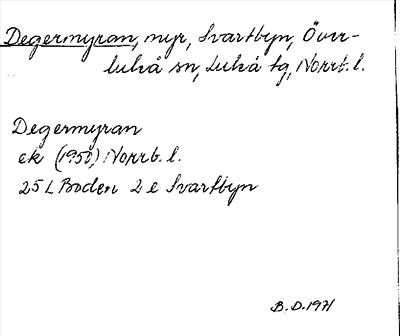 Degermyran, myr, Svartbyn, Över-
luleå sn, Luleå tg, Norrb. l.
Degermyran
ek (1950) Norrb. l.
25 L Boden 2 e Svartbyn
B.D. 1971